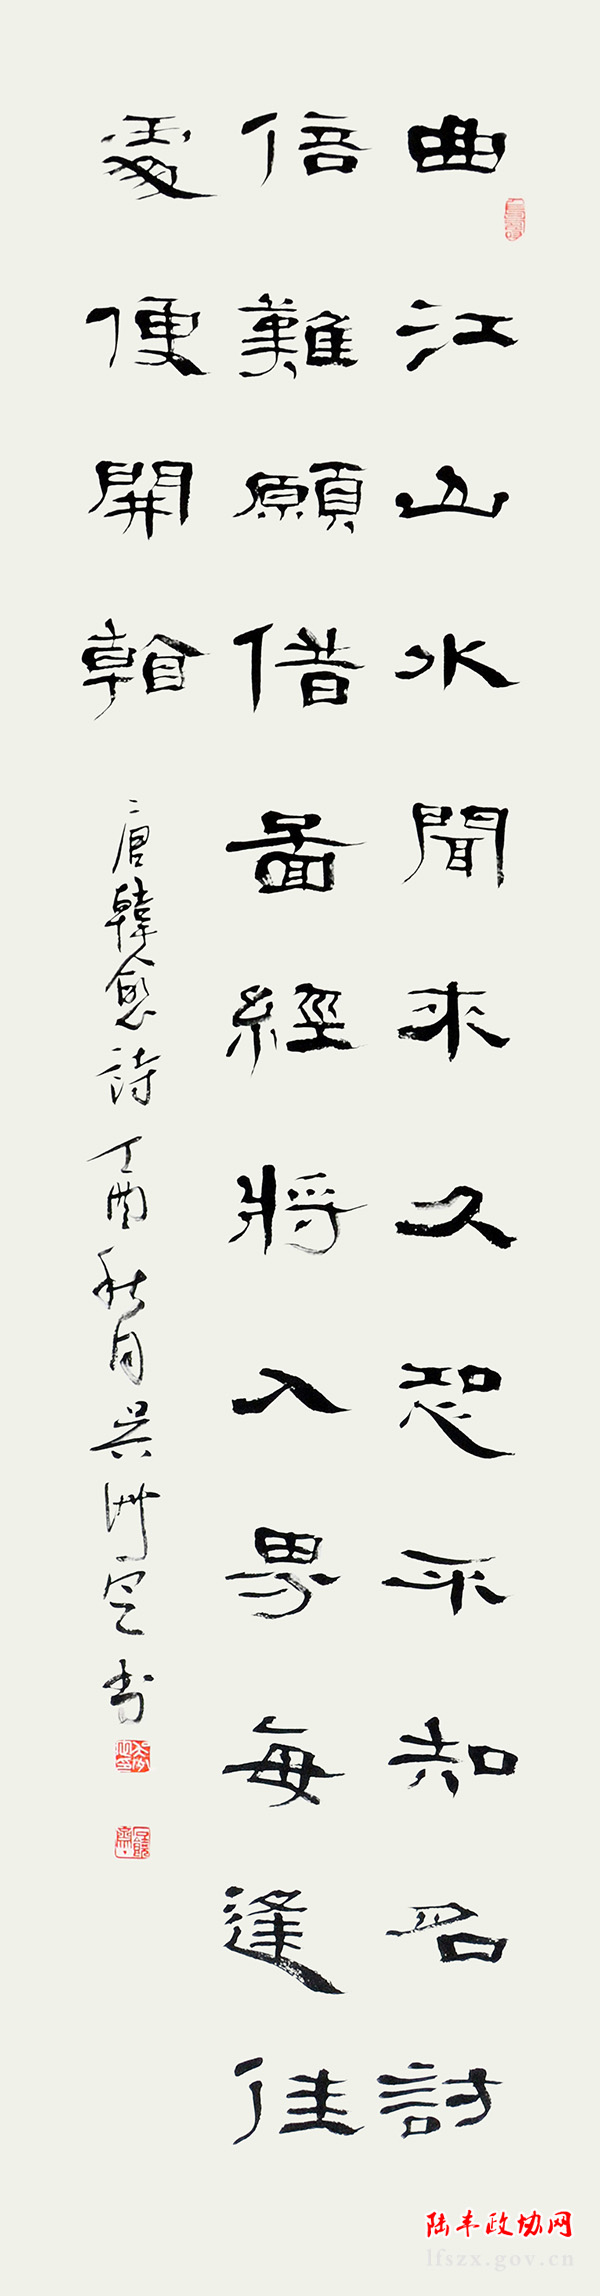 曲江山水聞來久恐不知名訪
倍難願借啚經將入界每逢佳
處便開看
唐韓愈詩丁酉秋月吳定書
陆丰政协网
lfszx.gov.cn